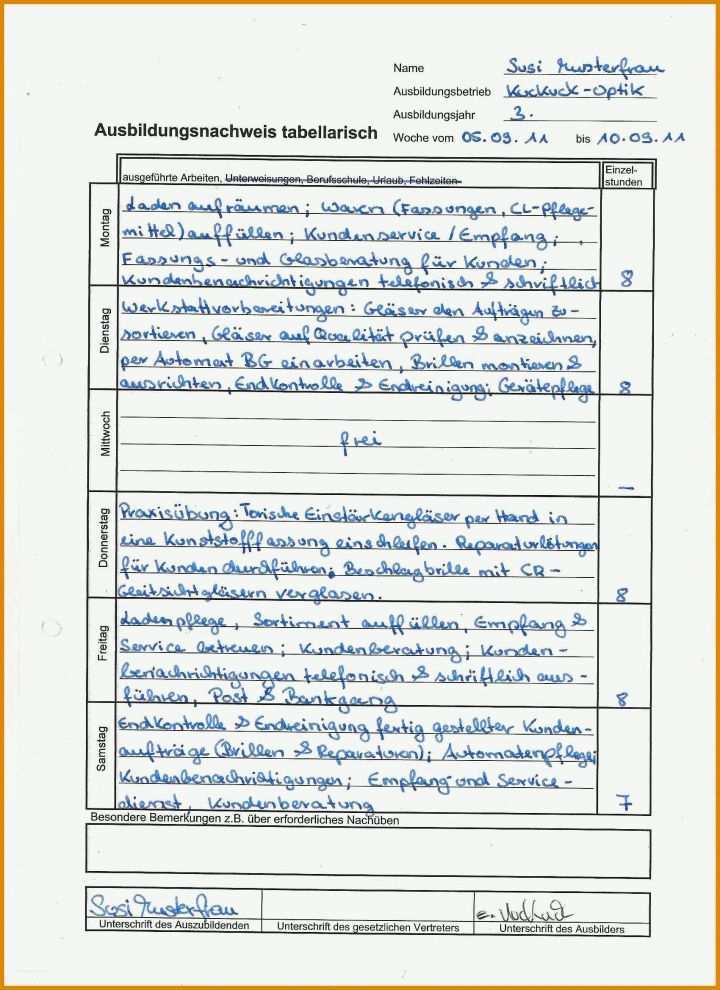 Name Susi Musterfrau
Ausbildungsbetrieb Kuckuck-Optik
Ausbildungsjahr 3.
Ausbildungsnachweis tabellarisch
Woche vom 05.09.11 bis 10.09.11
ausgeführte Arbeiten, Unterweisungen, Berufsschule, Urlaub, Fehlzeiten
Einzel-
stunden
Montag
Laden aufräumen; Waren (Fassungen, CL-Pflege-
mittel) auffüllen; Kundenservice / Empfang;
Fassungs- und Glasberatung für Kunden;
Kundenbenachrichtigungen telefonisch & schriftlich
8
Dienstag
Werkstattvorbereitungen: Gläser den Aufträgen zu-
sortieren, Gläser auf Qualität prüfen & anzeichnen,
per Automat BG einarbeiten, Brillen montieren &
ausrichten, Endkontrolle & Endreinigung; Gerätepflege
8
Mittwoch
frei
—
Donnerstag
Praxisübung: Torische Einstärkengläser per Hand in
eine Kunststofffassung einschleifen. Reparaturlötungen
für Kunden durchführen; Beschlagbrille mit CR-
Gleitsichtgläsern verglasen.
8
Freitag
Ladenpflege, Sortiment auffüllen, Empfang &
Service betreuen; Kundenberatung; Kunden-
benachrichtigungen telefonisch & schriftlich aus-
führen, Post & Bankgang
8
Samstag
Endkontrolle & Endreinigung fertig gestellter Kunden-
aufträge (Brillen & Reparaturen); Automatenpflege;
Kundenbenachrichtigungen; Empfang und Service-
dienst, Kundenberatung
7
Besondere Bemerkungen z.B. über erforderliches Nachüben
Susi Musterfrau
Unterschrift des Auszubildenden
Unterschrift des gesetzlichen Vertreters
Unterschrift des Ausbilders